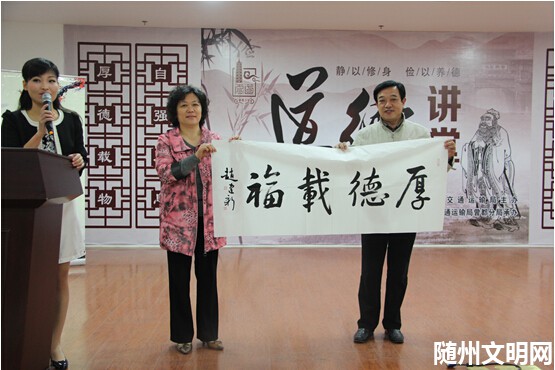 静/以/修/身 俭/以/养/德
道德讲堂
厚德载物
自强
厚德載福
交通运输局主办
通运输局曾都分局承办
随州文明网